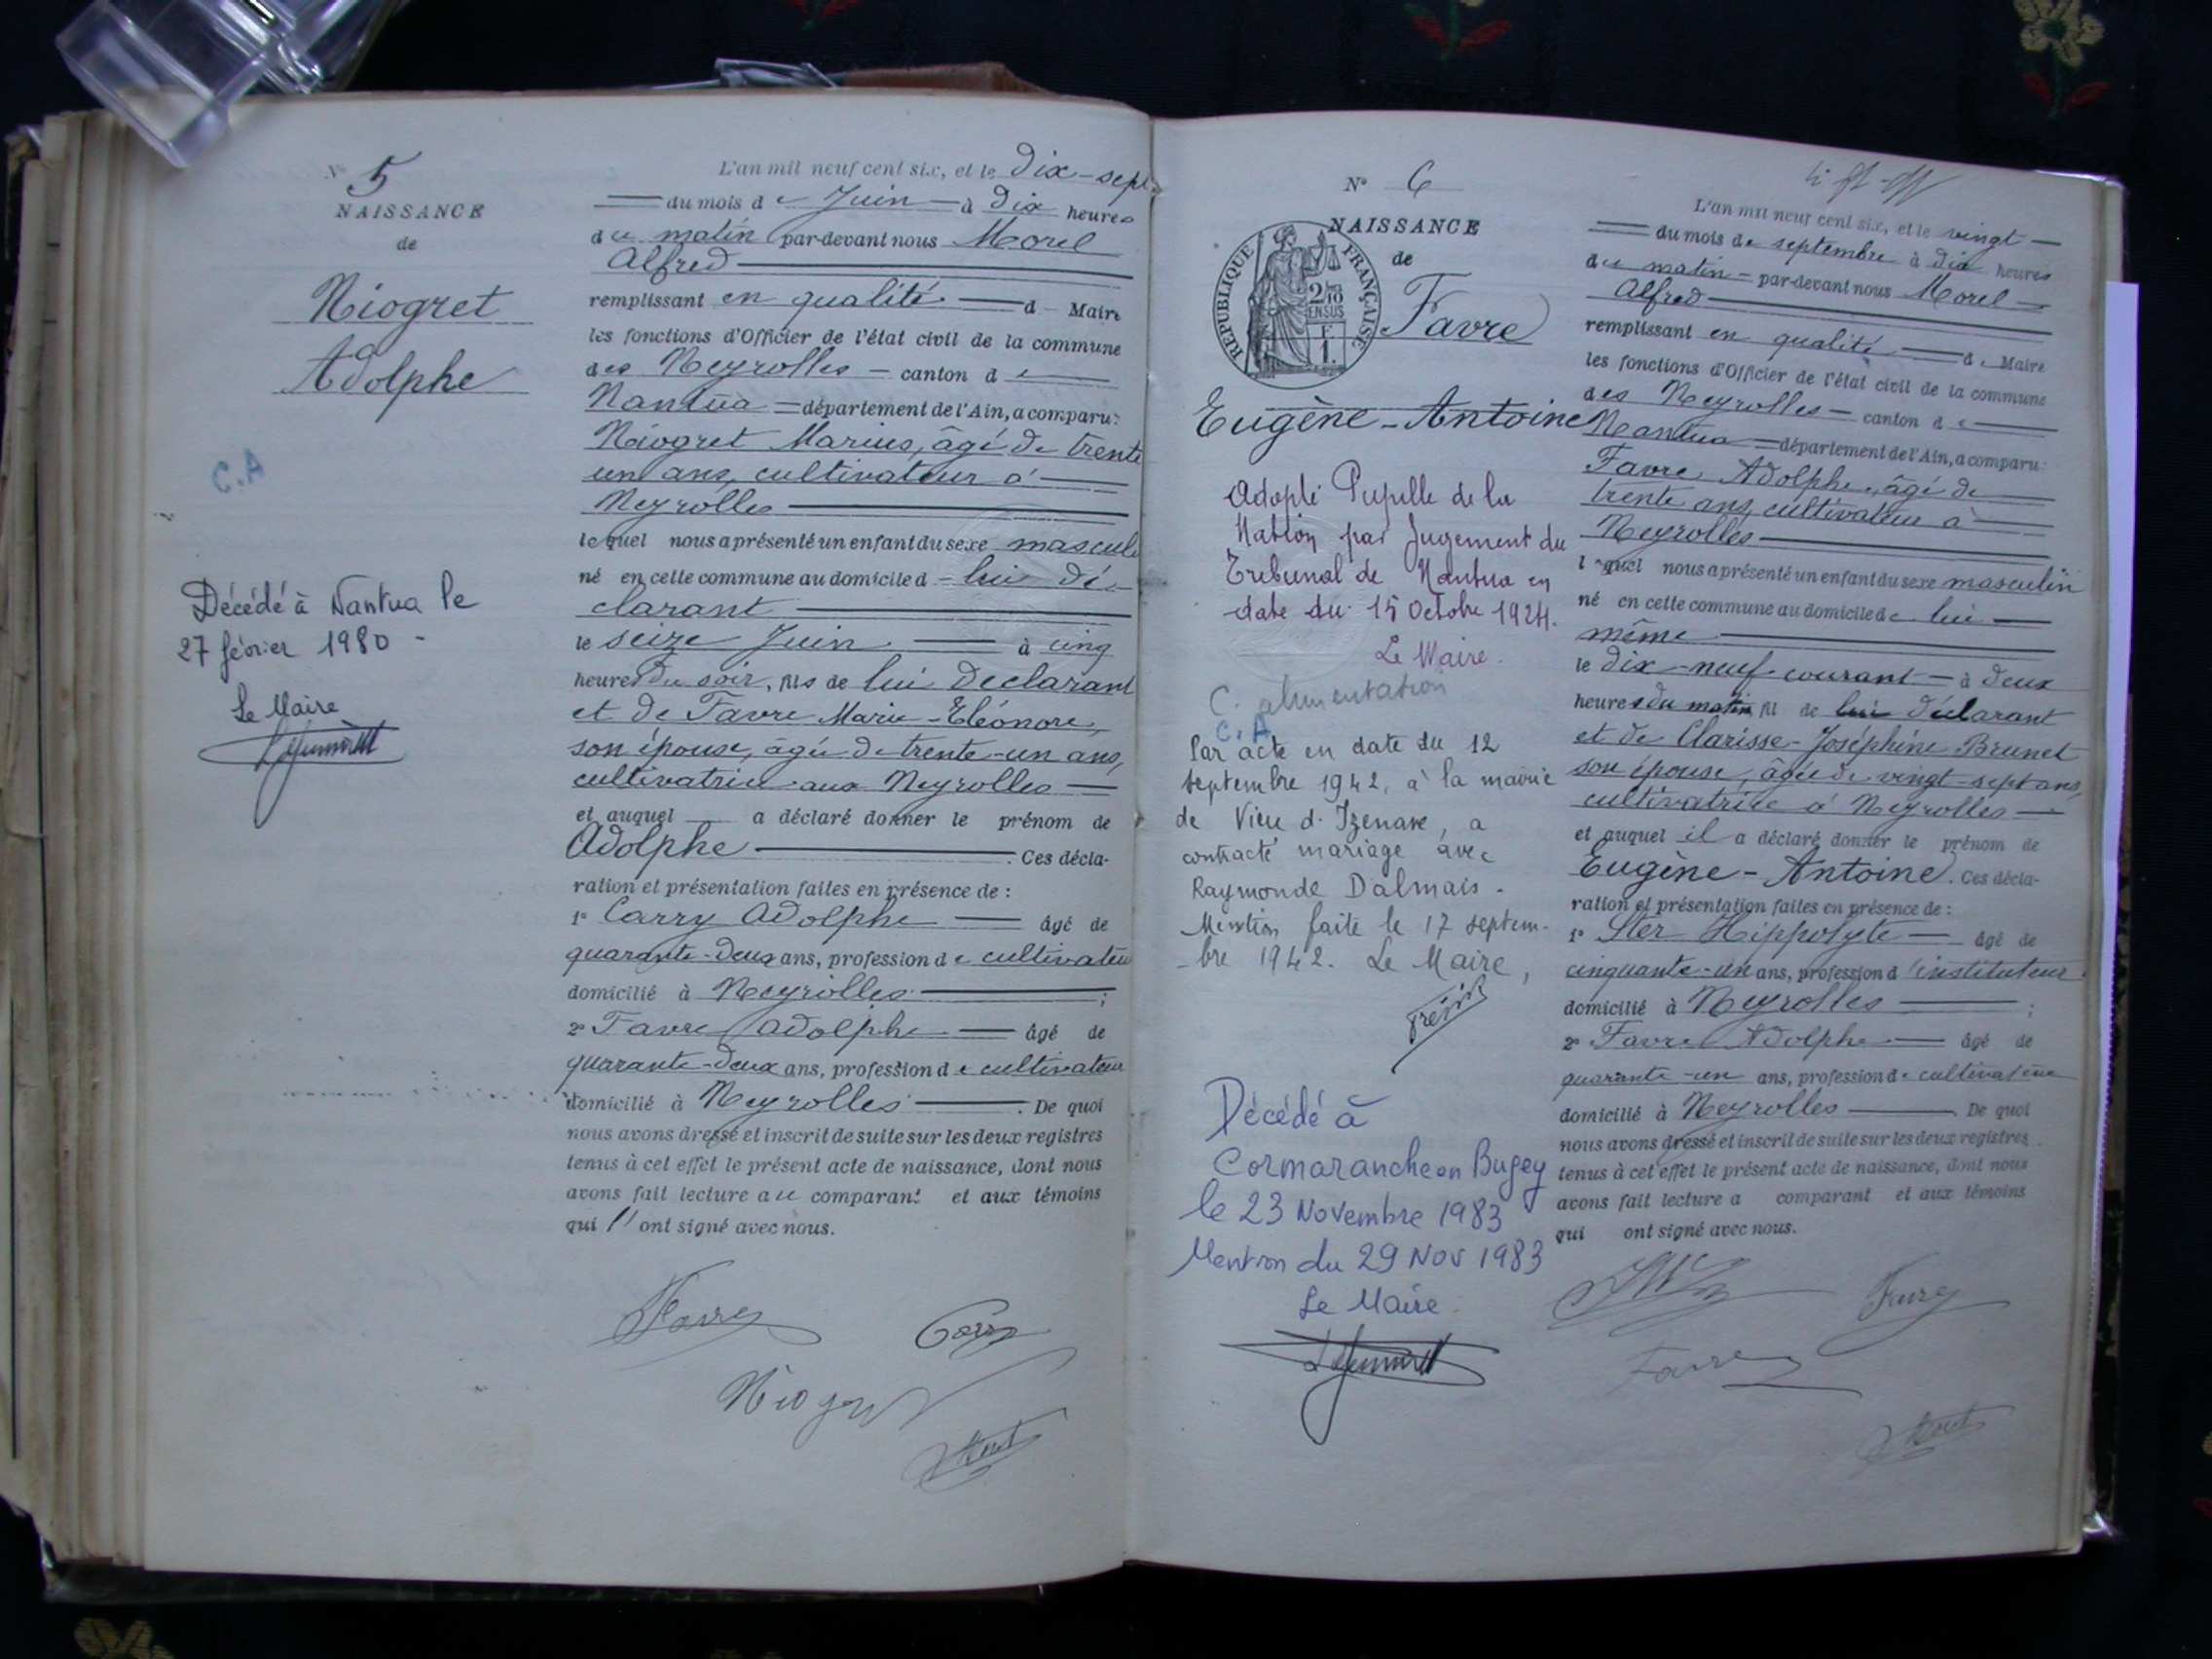 N° 5
NAISSANCE
de
Niogret
Adolphe
C.A
Décédé à Nantua le
27 février 1980 -
Le Maire
L'an mil neuf cent six, et le Dix-sept
du mois de Juin à Dix heures
du matin par-devant nous Morel
Alfred
remplissant en qualité d Maire
les fonctions d'Officier de l'état civil de la commune
des Neyrolles canton de
Nantua département de l'Ain, a comparu:
Niogret Marius, âgé de trente
un ans, cultivateur à
Neyrolles
lequel nous a présenté un enfant du sexe mascul
né en cette commune au domicile d lui dé-
clarant
le seize Juin à cinq
heures du soir, fils de lui Déclarant
et de Favre Marie-Eléonore,
son épouse, âgée de trente-un ans,
cultivatrice aux Neyrolles
et auquel a déclaré donner le prénom de
Adolphe. Ces décla-
ration et présentation faites en présence de :
1° Carry Adolphe âgé de
quarante-deux ans, profession de cultivateur
domicilié à Neyrolles ;
2° Favre Adolphe âgé de
quarante-deux ans, profession de cultivateur
domicilié à Neyrolles. De quoi
nous avons dressé et inscrit de suite sur les deux registres
tenus à cet effet le présent acte de naissance, dont nous
avons fait lecture au comparant et aux témoins
qui l'ont signé avec nous.
Favre
Carry
Niogret
N° 6
NAISSANCE
de
RÉPUBLIQUE FRANÇAISE
2/10
EN SUS
F.
1.
Favre
Eugène-Antoine
Adopté Pupille de la
Nation par Jugement du
Tribunal de Nantua en
date du 15 Octobre 1924.
Le Maire.
C. alimentation
C.A
Par acte en date du 12
septembre 1942, à la mairie
de Vieu d'Izenave, a
contracté mariage avec
Raymonde Dalmais.
Mention faite le 17 septem-
-bre 1942. Le Maire,
Décédé à
Cormaranche en Bugey
le 23 Novembre 1983
Mention du 29 NOV 1983
Le Maire
L'an mil neuf cent six, et le vingt
du mois de septembre à dix heures
du matin par-devant nous Morel
Alfred
remplissant en qualité de Maire
les fonctions d'Officier de l'état civil de la commune
des Neyrolles canton de
Nantua département de l'Ain, a comparu:
Favre Adolphe, âgé de
trente ans, cultivateur à
Neyrolles
lequel nous a présenté un enfant du sexe masculin
né en cette commune au domicile de lui
même
le dix-neuf courant à deux
heures du matin fil de lui déclarant
et de Clarisse-Joséphine Brunet
son épouse, âgée de vingt-sept ans,
cultivatrice à Neyrolles
et auquel il a déclaré donner le prénom de
Eugène-Antoine. Ces décla-
ration et présentation faites en présence de :
1° Ster Hippolyte âgé de
cinquante-un ans, profession d'instituteur
domicilié à Neyrolles ;
2° Favre Adolphe âgé de
quarante-un ans, profession de cultivateur
domicilié à Neyrolles. De quoi
nous avons dressé et inscrit de suite sur les deux registres
tenus à cet effet le présent acte de naissance, dont nous
avons fait lecture a comparant et aux témoins
qui ont signé avec nous.
Favre
Favre